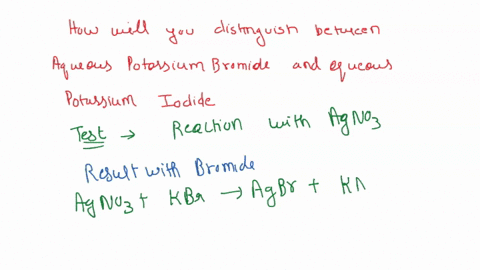 How will you distinguish between
Aqueous Potassium Bromide and equeous
Potussium Iodide
Test → Reaction with AgNO3
Result with Bromide
AgNO3 + KBr → AgBr + KN